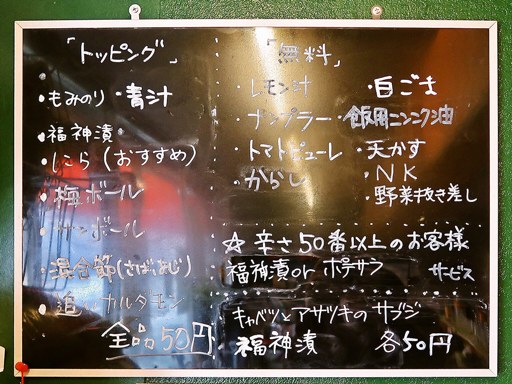 「トッピング」
・もみのり ・青汁
・福神漬
・しこら(おすすめ)
・梅ボール
ボール
・混合節(さば、あじ)
・追いカルダモン
全品50円
「無料」
・レモン汁 ・白ごま
・ナンプラー ・飯用ニンニク油
・トマトピューレ ・天かす
・からし ・NK
・野菜抜き差し
☆辛さ50番以上のお客様
福神漬or ポテサラ サービス
キャベツとアサツキのサブジ
福神漬 各50円